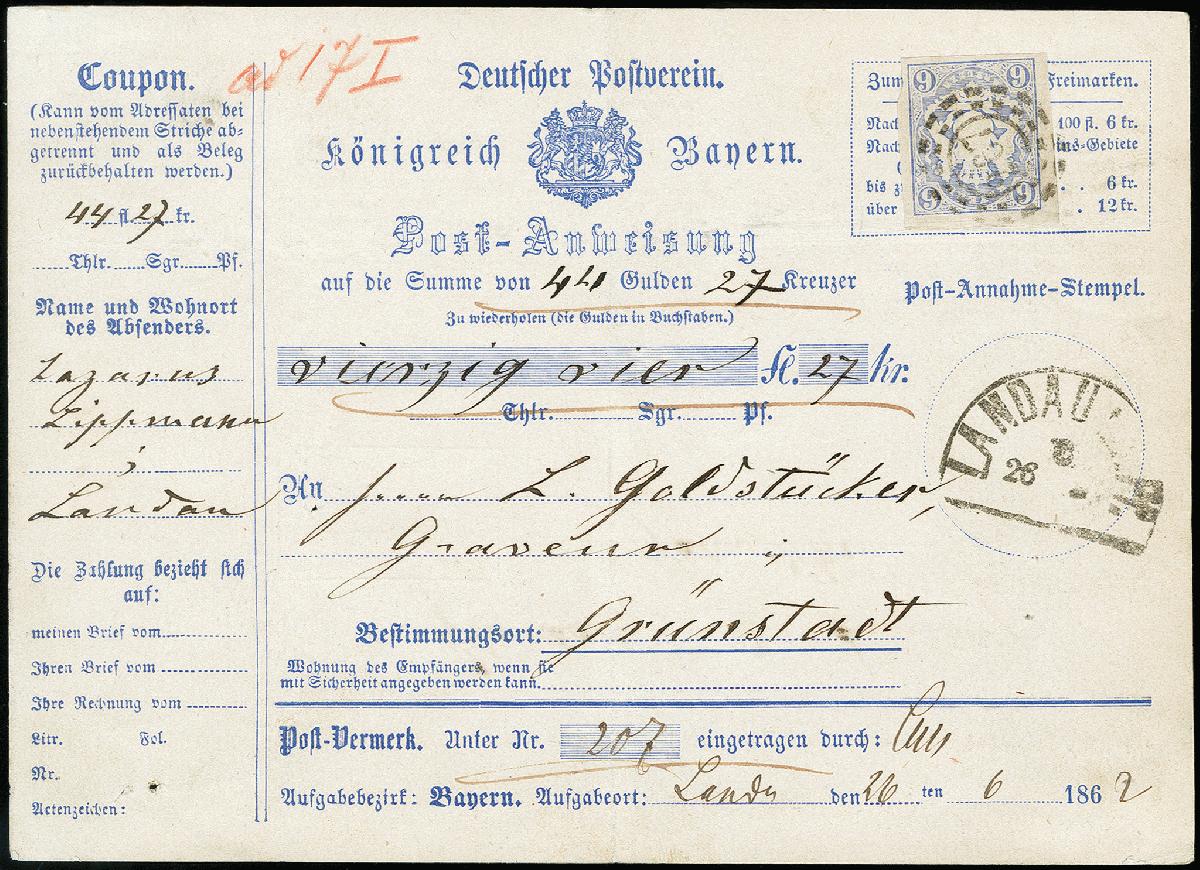 Coupon.
(Kann vom Adressaten bei
nebenstehendem Striche ab-
getrennt und als Beleg
zurückbehalten werden.)
44 fl. 27 kr.
Thlr. Sgr. Pf.
Name und Wohnort
des Absenders.
Lazarus
Lippmann
Landau
Die Zahlung bezieht sich
auf:
meinen Brief vom
Ihren Brief vom
Ihre Rechnung vom
Litr. Fol.
Nr.
Actenzeichen:
ad 17 I
Deutscher Postverein.
Königreich Bayern.
Post-Anweisung
auf die Summe von 44 Gulden 27 Kreuzer
Zu wiederholen (die Gulden in Buchstaben.)
vierzig vier Fl. 27 kr.
Thlr. Sgr. Pf.
An Herrn L. Goldstücker,
Graveur in
Bestimmungsort: Grünstadt
Wohnung des Empfängers, wenn sie
mit Sicherheit angegeben werden kann.
Post-Vermerk. Unter Nr. 207 eingetragen durch:
Aufgabebezirk: Bayern. Aufgabeort: Landu den 26 ten 6 1862
Zum Freimarken.
Nach 100 fl. 6 kr.
Nach ins-Gebiete
bis z 6 kr.
über 12 kr.
9 9
9 9
Post-Annahme-Stempel.
LANDAU
26